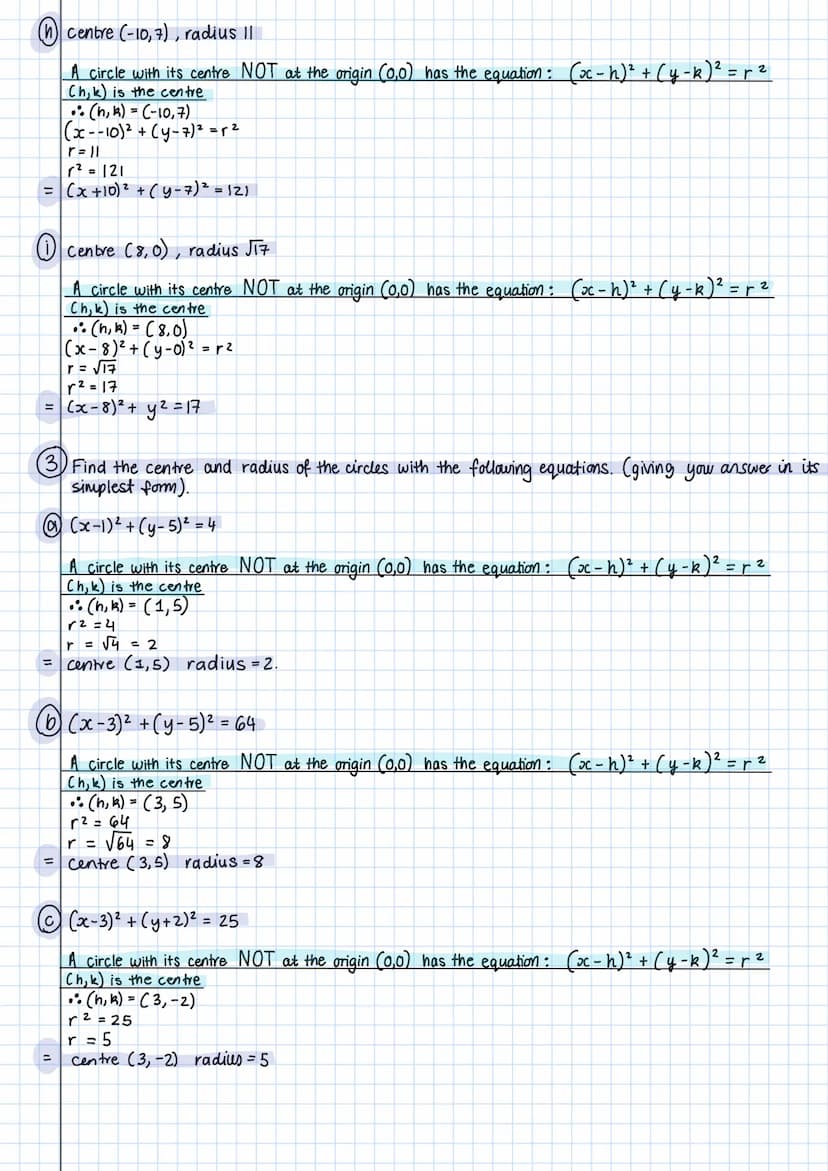 (h) centre (-10,7), radius 11
A circle with its centre NOT at the origin (0,0) has the equation: (x-h)² + (y-k)² = r²
(h,k) is the centre
∴ (h,k) = (-10,7)
(x--10)² + (y-7)² = r²
r = 11
r² = 121
= (x+10)² + (y-7)² = 121
(i) centre (8,0), radius √17
A circle with its centre NOT at the origin (0,0) has the equation: (x-h)² + (y-k)² = r²
(h,k) is the centre
∴ (h,k) = (8,0)
(x-8)² + (y-0)² = r²
r = √17
r² = 17
= (x-8)² + y² = 17
(3) Find the centre and radius of the circles with the following equations. (giving your answer in its
simplest form).
(a) (x-1)² + (y-5)² = 4
A circle with its centre NOT at the origin (0,0) has the equation: (x-h)² + (y-k)² = r²
(h,k) is the centre
∴ (h,k) = (1,5)
r² = 4
r = √4 = 2
= centre (1,5) radius = 2.
(b) (x-3)² + (y-5)² = 64
A circle with its centre NOT at the origin (0,0) has the equation: (x-h)² + (y-k)² = r²
(h,k) is the centre
∴ (h,k) = (3,5)
r² = 64
r = √64 = 8
= centre (3,5) radius = 8
(c) (x-3)² + (y+2)² = 25
A circle with its centre NOT at the origin (0,0) has the equation: (x-h)² + (y-k)² = r²
(h,k) is the centre
∴ (h,k) = (3,-2)
r² = 25
r = 5
= centre (3,-2) radius = 5